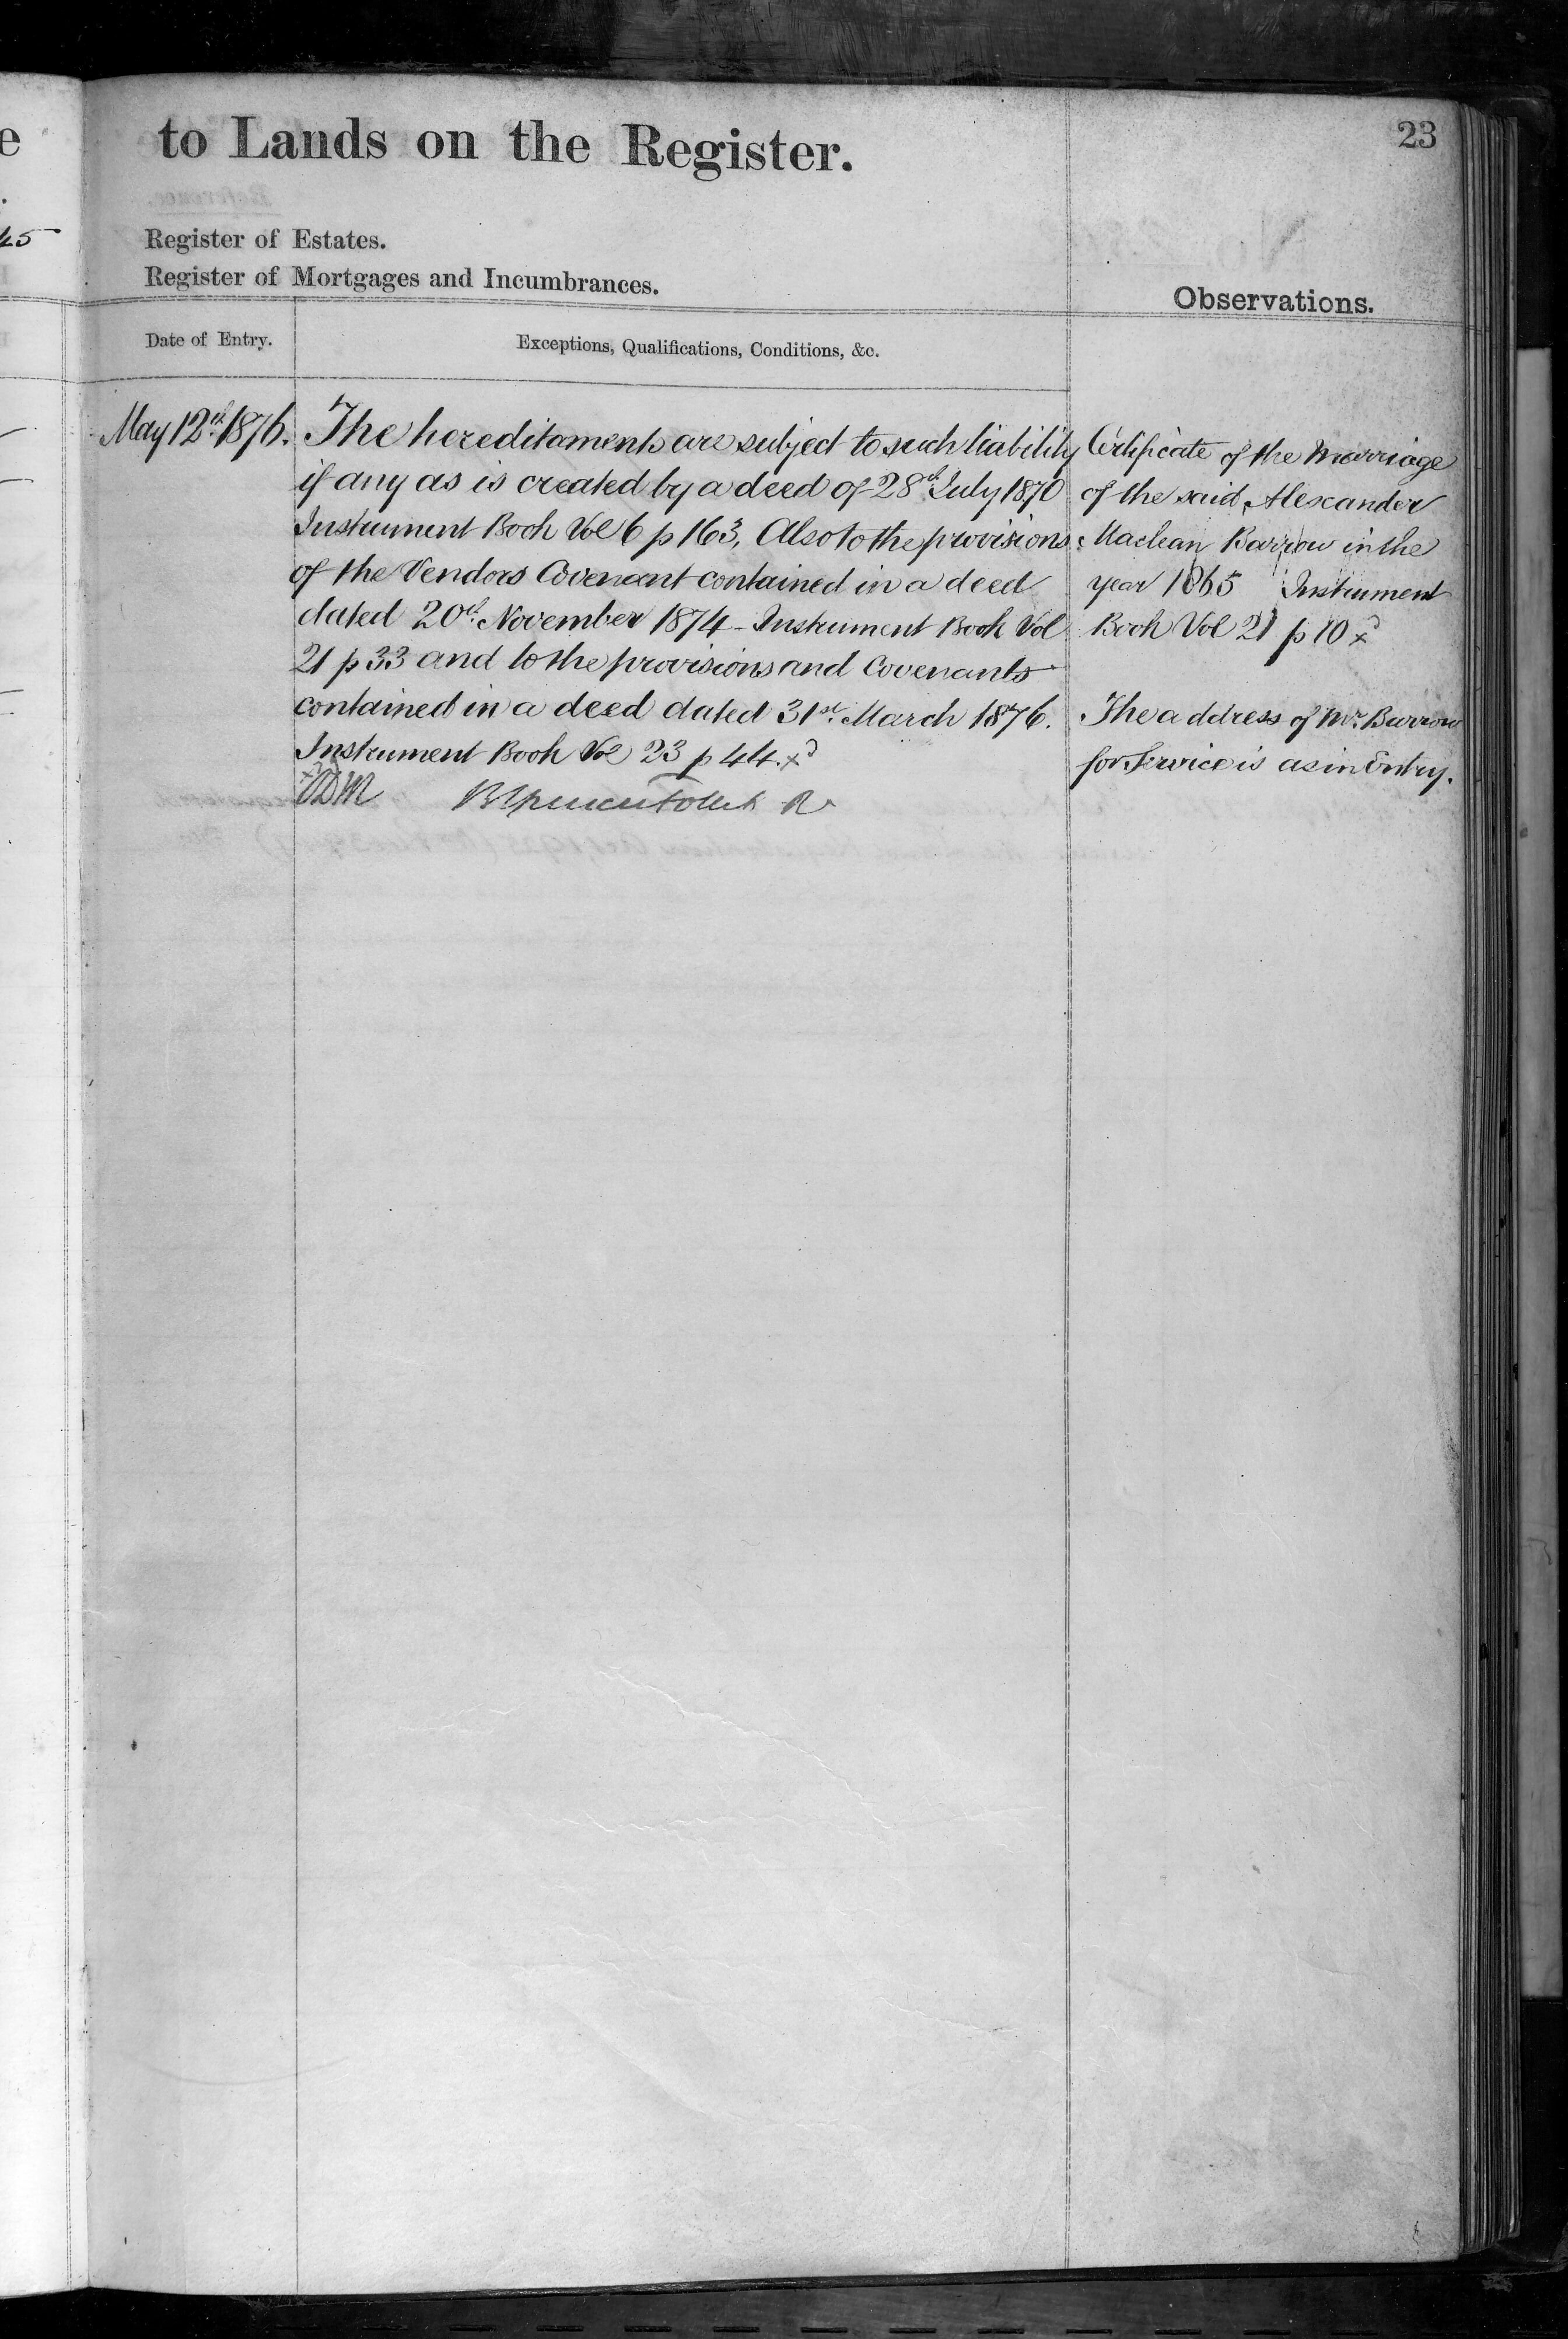 to Lands on the Register.
23
45
Register of Estates.
Register of Mortgages and Incumbrances.
Observations.
Date of Entry.
Exceptions, Qualifications, Conditions, &c.
May 12th 1876.
The hereditaments are subject to such liability
if any as is created by a deed of 28th July 1870
Instrument Book Vol 6 p 163, Also to the provisions
of the Vendors Covenant contained in a deed
dated 20th November 1874 - Instrument Book Vol
21 p 33 and to the provisions and Covenants
contained in a deed dated 31st March 1876.
Instrument Book Vol 23 p 44. xd
R
Certificate of the Marriage
of the said Alexander
Maclean Barrow in the
year 1865 Instrument
Book Vol 21 p 10 xd
The address of Mr. Barrow
for Service is as in Entry.